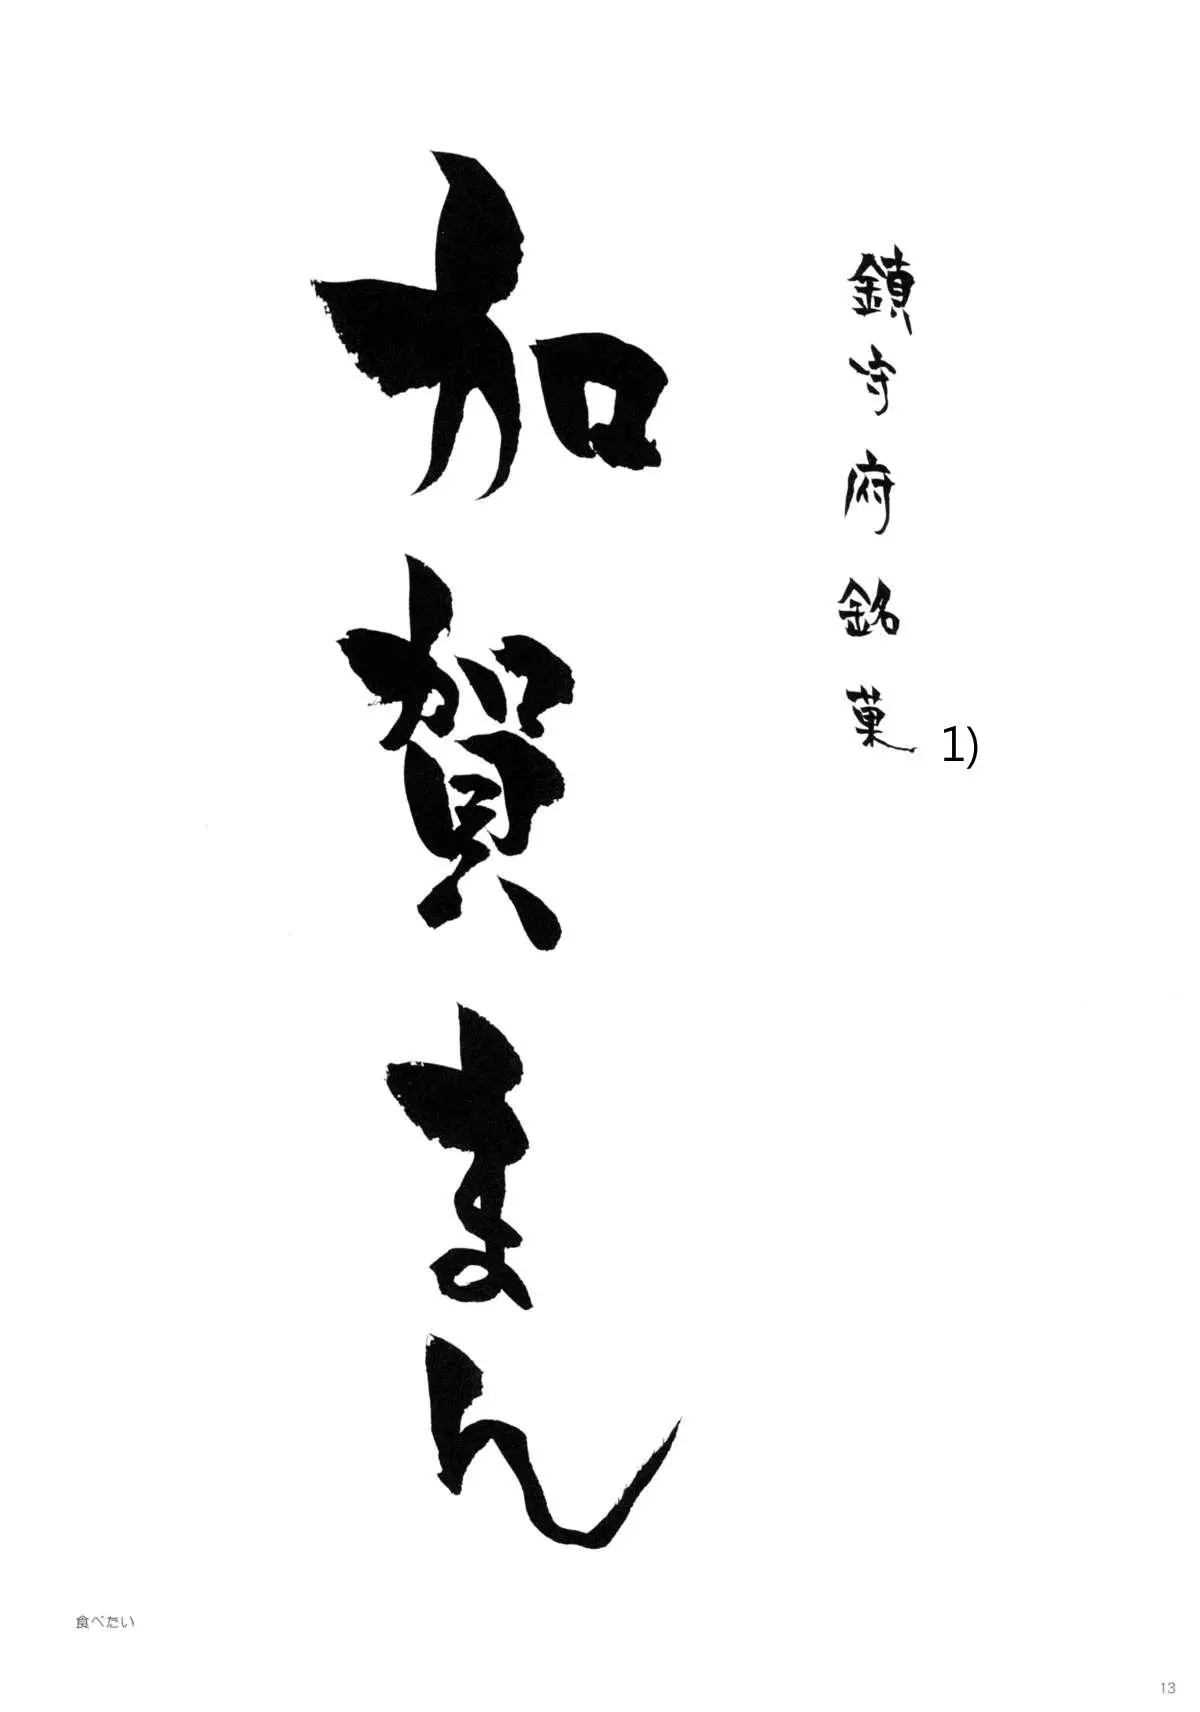 鎮守府銘菓
1)
加賀まん
食べたい
13